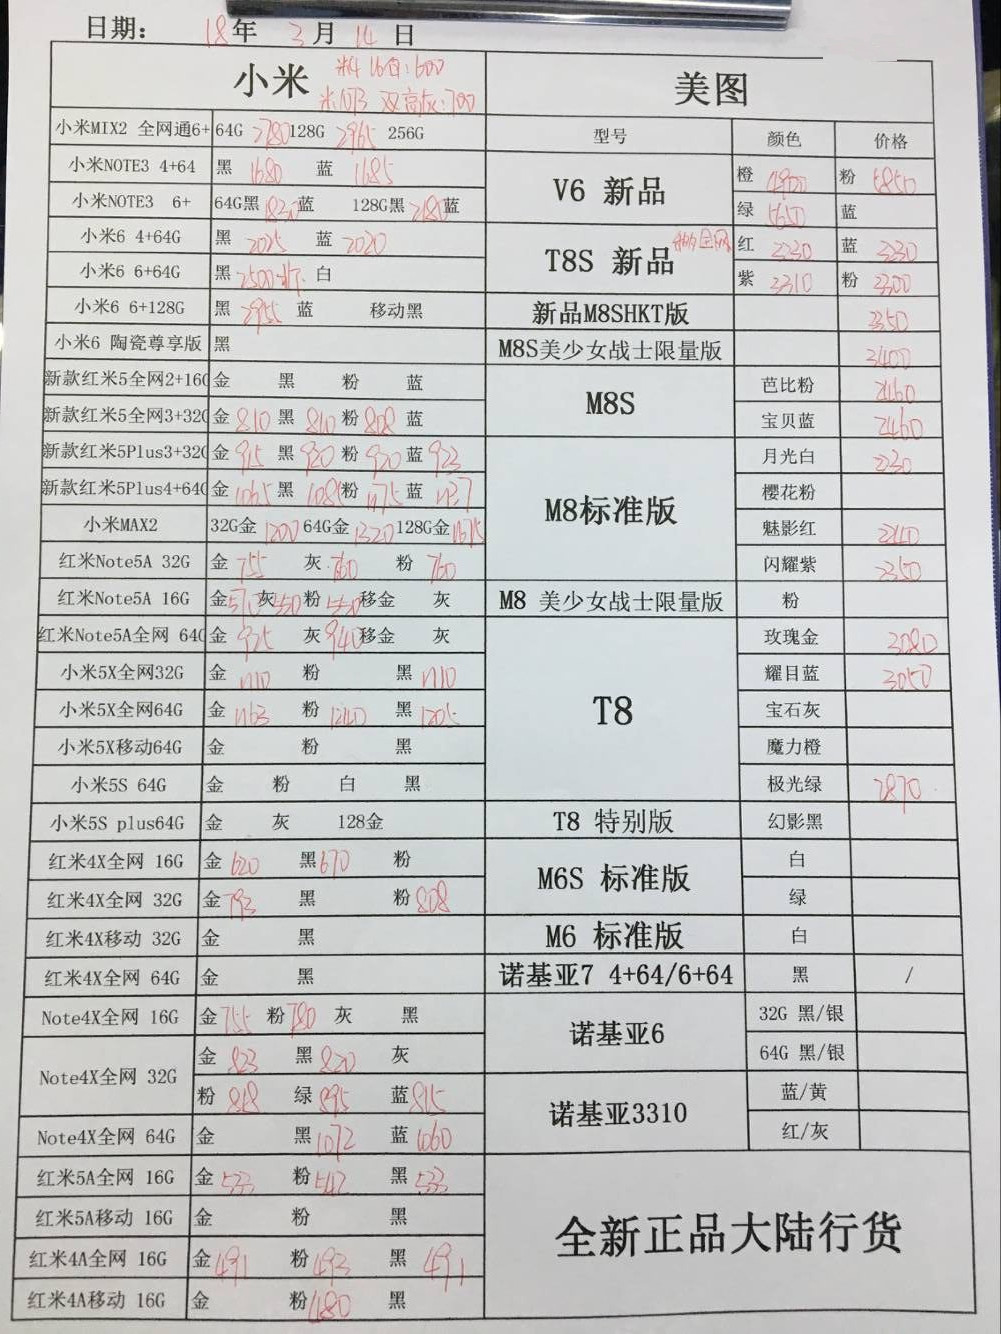 日期： 18年 3月 14日
小米
美图
小米MIX2 全网通6+ 64G 2780 128G 2965 256G
型号 颜色 价格
小米NOTE3 4+64 黑 1680 蓝 1685
V6 新品 橙 粉 5850
小米NOTE3 6+ 64G黑 1830 蓝 128G黑 2180 蓝
绿 5650 蓝
小米6 4+64G 黑 2025 蓝 2020
T8S 新品 红 2230 蓝 2230
小米6 6+64G 黑 2500 白
紫 2310 粉 2300
小米6 6+128G 黑 2955 蓝 移动黑
新品M8SHKT版 2350
小米6 陶瓷尊享版 黑
M8S美少女战士限量版 2400
新款红米5全网2+16G 金 黑 粉 蓝
M8S 芭比粉 2460
新款红米5全网3+32G 金 810 黑 810 粉 808 蓝
宝贝蓝 2460
新款红米5Plus3+32G 金 915 黑 920 粉 920 蓝 923
M8标准版 月光白 2230
新款红米5Plus4+64G 金 1065 黑 1085 粉 1175 蓝 1137
樱花粉
小米MAX2 32G金 1200 64G金 1320 128G金
魅影红 2240
红米Note5A 32G 金 755 灰 760 粉 760
闪耀紫 2350
红米Note5A 16G 金 570 灰 550 粉 550 移金 灰
M8 美少女战士限量版 粉
红米Note5A全网 64G 金 925 灰 940 移金 灰
T8 玫瑰金 3080
小米5X全网32G 金 1110 粉 黑 1110
耀目蓝 3050
小米5X全网64G 金 1163 粉 1210 黑 1205
宝石灰
小米5X移动64G 金 粉 黑
魔力橙
小米5S 64G 金 粉 白 黑
极光绿 2870
小米5S plus64G 金 灰 128金
T8 特别版 幻影黑
红米4X全网 16G 金 620 黑 670 粉
M6S 标准版 白
红米4X全网 32G 金 793 黑 粉 808
绿
红米4X移动 32G 金 黑
M6 标准版 白
红米4X全网 64G 金 黑
诺基亚7 4+64/6+64 黑 /
Note4X全网 16G 金 755 粉 780 灰 黑
诺基亚6 32G 黑/银
Note4X全网 32G 金 823 黑 820 灰
64G 黑/银
粉 818 绿 895 蓝 815
诺基亚3310 蓝/黄
Note4X全网 64G 金 黑 1072 蓝 1060
红/灰
红米5A全网 16G 金 533 粉 542 黑 533
红米5A移动 16G 金 粉 黑
全新正品大陆行货
红米4A全网 16G 金 491 粉 493 黑 491
红米4A移动 16G 金 粉 480 黑